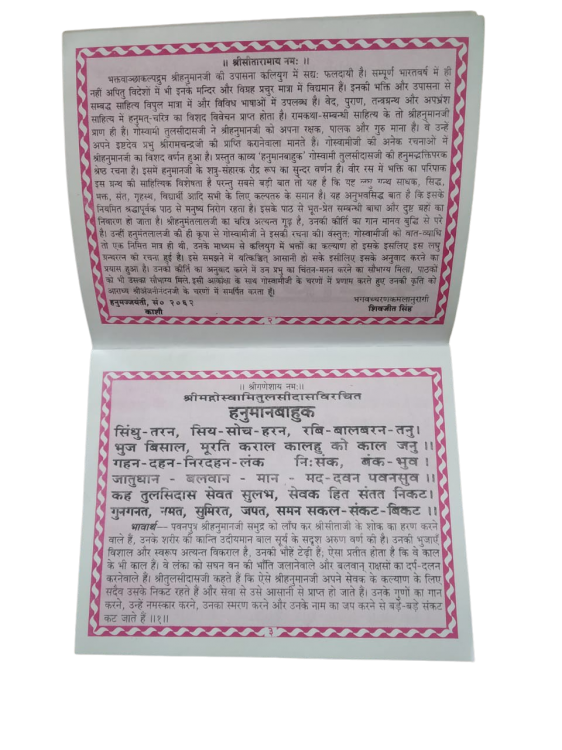 ॥ श्रीसीतारामाय नमः ॥
भक्तवाञ्छाकल्पद्रुम श्रीहनुमानजी की उपासना कलियुग में सद्यः फलदायी है। सम्पूर्ण भारतवर्ष में ही
नहीं अपितु विदेशों में भी इनके मन्दिर और विग्रह प्रचुर मात्रा में विद्यमान हैं। इनकी भक्ति और उपासना से
सम्बद्ध साहित्य विपुल मात्रा में और विविध भाषाओं में उपलब्ध है। वेद, पुराण, तन्त्रग्रन्थ और अपभ्रंश
साहित्य में हनुमत्-चरित्र का विशद विवेचन प्राप्त होता है। रामकथा-सम्बन्धी साहित्य के तो श्रीहनुमानजी
प्राण ही हैं। गोस्वामी तुलसीदासजी ने श्रीहनुमानजी को अपना रक्षक, पालक और गुरु माना है। वे उन्हें
अपने इष्टदेव प्रभु श्रीरामचन्द्रजी की प्राप्ति करानेवाला मानते हैं। गोस्वामीजी की अनेक रचनाओं में
श्रीहनुमानजी का विशद वर्णन हुआ है। प्रस्तुत काव्य 'हनुमानबाहुक' गोस्वामी तुलसीदासजी की हनुमद्भक्तिपरक
श्रेष्ठ रचना है। इसमें हनुमानजी के शत्रु-संहारक रौद्र रूप का सुन्दर वर्णन है। वीर रस में भक्ति का परिपाक
इस ग्रन्थ की साहित्यिक विशेषता है परन्तु सबसे बड़ी बात तो यह है कि यह साधक, सिद्ध,
भक्त, संत, गृहस्थ, विद्यार्थी आदि सभी के लिए कल्पतरु के समान है। यह अनुभवसिद्ध बात है कि इसके
नियमित श्रद्धापूर्वक पाठ से मनुष्य निरोग रहता है। इसके पाठ से भूत-प्रेत सम्बन्धी बाधा और दुष्ट ग्रहों का
निवारण हो जाता है। श्रीहनुमंतलालजी का चरित्र अत्यन्त गूढ़ है, उनकी कीर्ति का गान मानव बुद्धि से परे
है। उन्हीं हनुमंतलालजी की ही कृपा से गोस्वामीजी ने इसकी रचना की। वस्तुतः गोस्वामीजी की वात-व्याधि
तो एक निमित्त मात्र ही थी, उनके माध्यम से कलियुग में भक्तों का कल्याण हो इसके इसलिए इस लघु
ग्रन्थरत्न की रचना हुई है। इसे समझने में यत्किंचित आसानी हो सके इसीलिए इसके अनुवाद करने का
प्रयास हुआ है। उनकी कीर्ति का अनुवाद करने में उन प्रभु का चिंतन-मनन करने का सौभाग्य मिला, पाठकों
को भी उसका सौभाग्य मिले, इसी आकांक्षा के साथ गोस्वामीजी के चरणों में प्रणाम करते हुए उनकी कृति को
आराध्य श्रीअंजनीनंदनजी के चरणों में समर्पित करता हूँ।
हनुमज्जयंती, सं० २०६२ भगवच्चरणकमलानुरागी
काशी शिवजीत सिंह
२
॥ श्रीगणेशाय नमः॥
श्रीमद्गोस्वामितुलसीदासविरचित
हनुमानबाहुक
सिंधु-तरन, सिय-सोच-हरन, रबि-बालबरन-तनु।
भुज बिसाल, मूरति कराल कालहु को काल जनु ॥
गहन-दहन-निरदहन-लंक निःसंक, बंक-भुव ।
जातुधान - बलवान - मान - मद-दवन पवनसुव ॥
कह तुलसिदास सेवत सुलभ, सेवक हित संतत निकट।
गुनगनत, नमत, सुमिरत, जपत, समन सकल-संकट-बिकट ॥
भावार्थ— पवनपुत्र श्रीहनुमानजी समुद्र को लाँघ कर श्रीसीताजी के शोक का हरण करने
वाले हैं, उनके शरीर की कान्ति उदीयमान बाल सूर्य के सदृश अरुण वर्ण की है। उनकी भुजाएँ
विशाल और स्वरूप अत्यन्त विकराल है, उनकी भौंहें टेढ़ी हैं; ऐसा प्रतीत होता है कि वे काल
के भी काल हैं। वे लंका को सघन वन की भाँति जलानेवाले और बलवान् राक्षसों का दर्प-दलन
करनेवाले हैं। श्रीतुलसीदासजी कहते हैं कि ऐसे श्रीहनुमानजी अपने सेवक के कल्याण के लिए
सदैव उसके निकट रहते हैं और सेवा से उसे आसानी से प्राप्त हो जाते हैं। उनके गुणों का गान
करने, उन्हें नमस्कार करने, उनका स्मरण करने और उनके नाम का जप करने से बड़े-बड़े संकट
कट जाते हैं ॥१॥
३